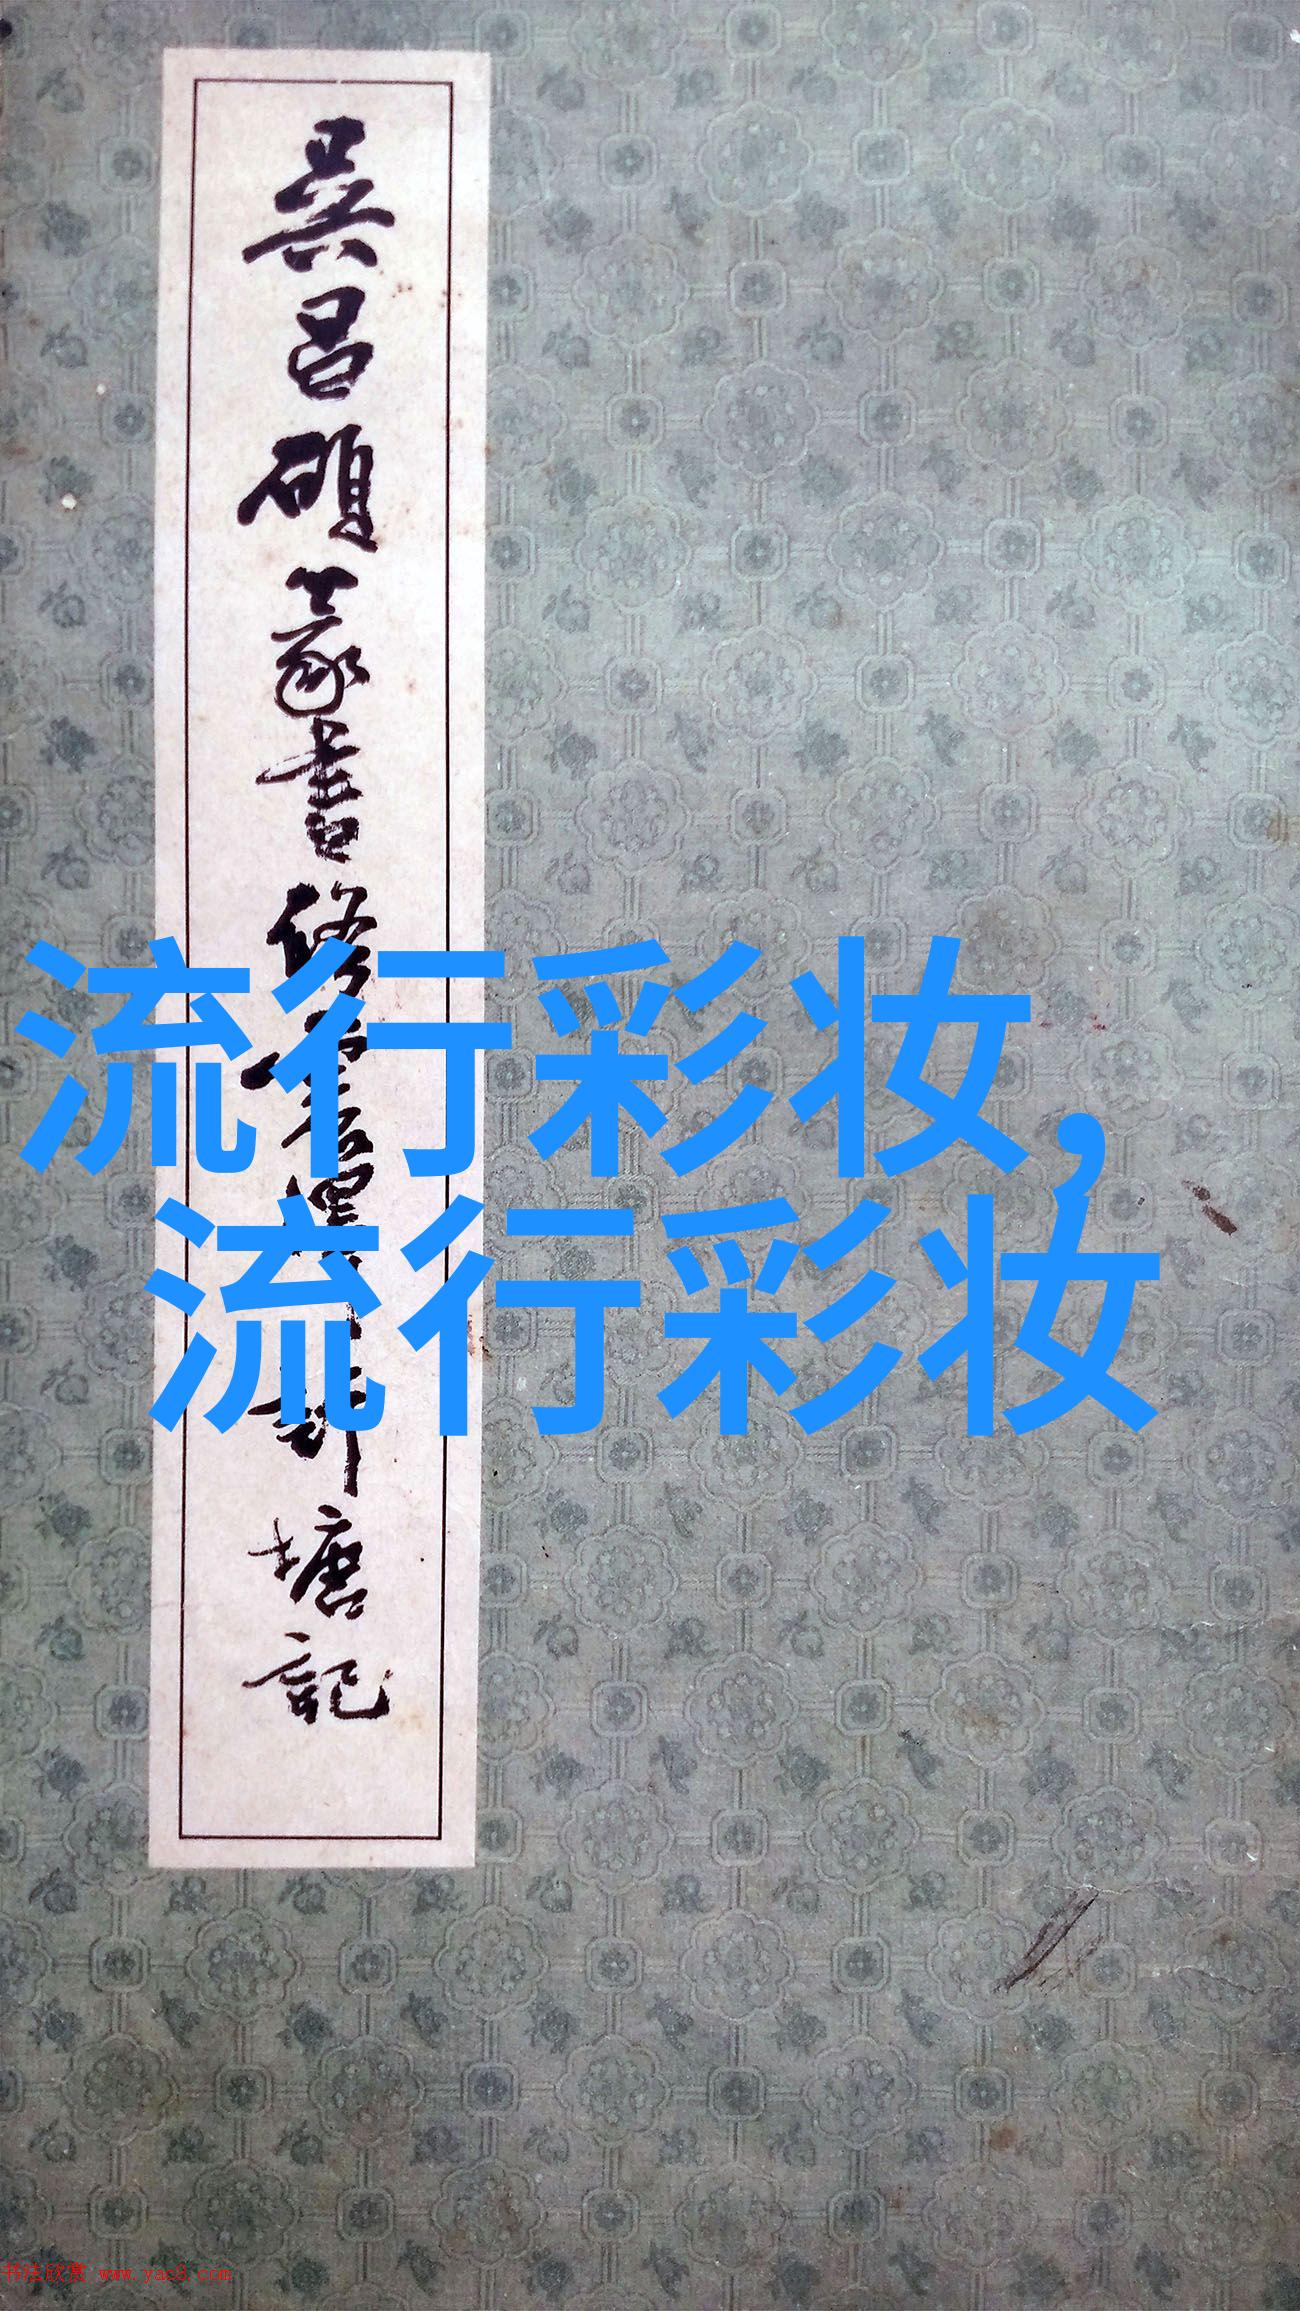 吴昌硕篆书修震泽许塘記
流行彩妆,
流行彩妆
书法欣赏 www.yac8.com